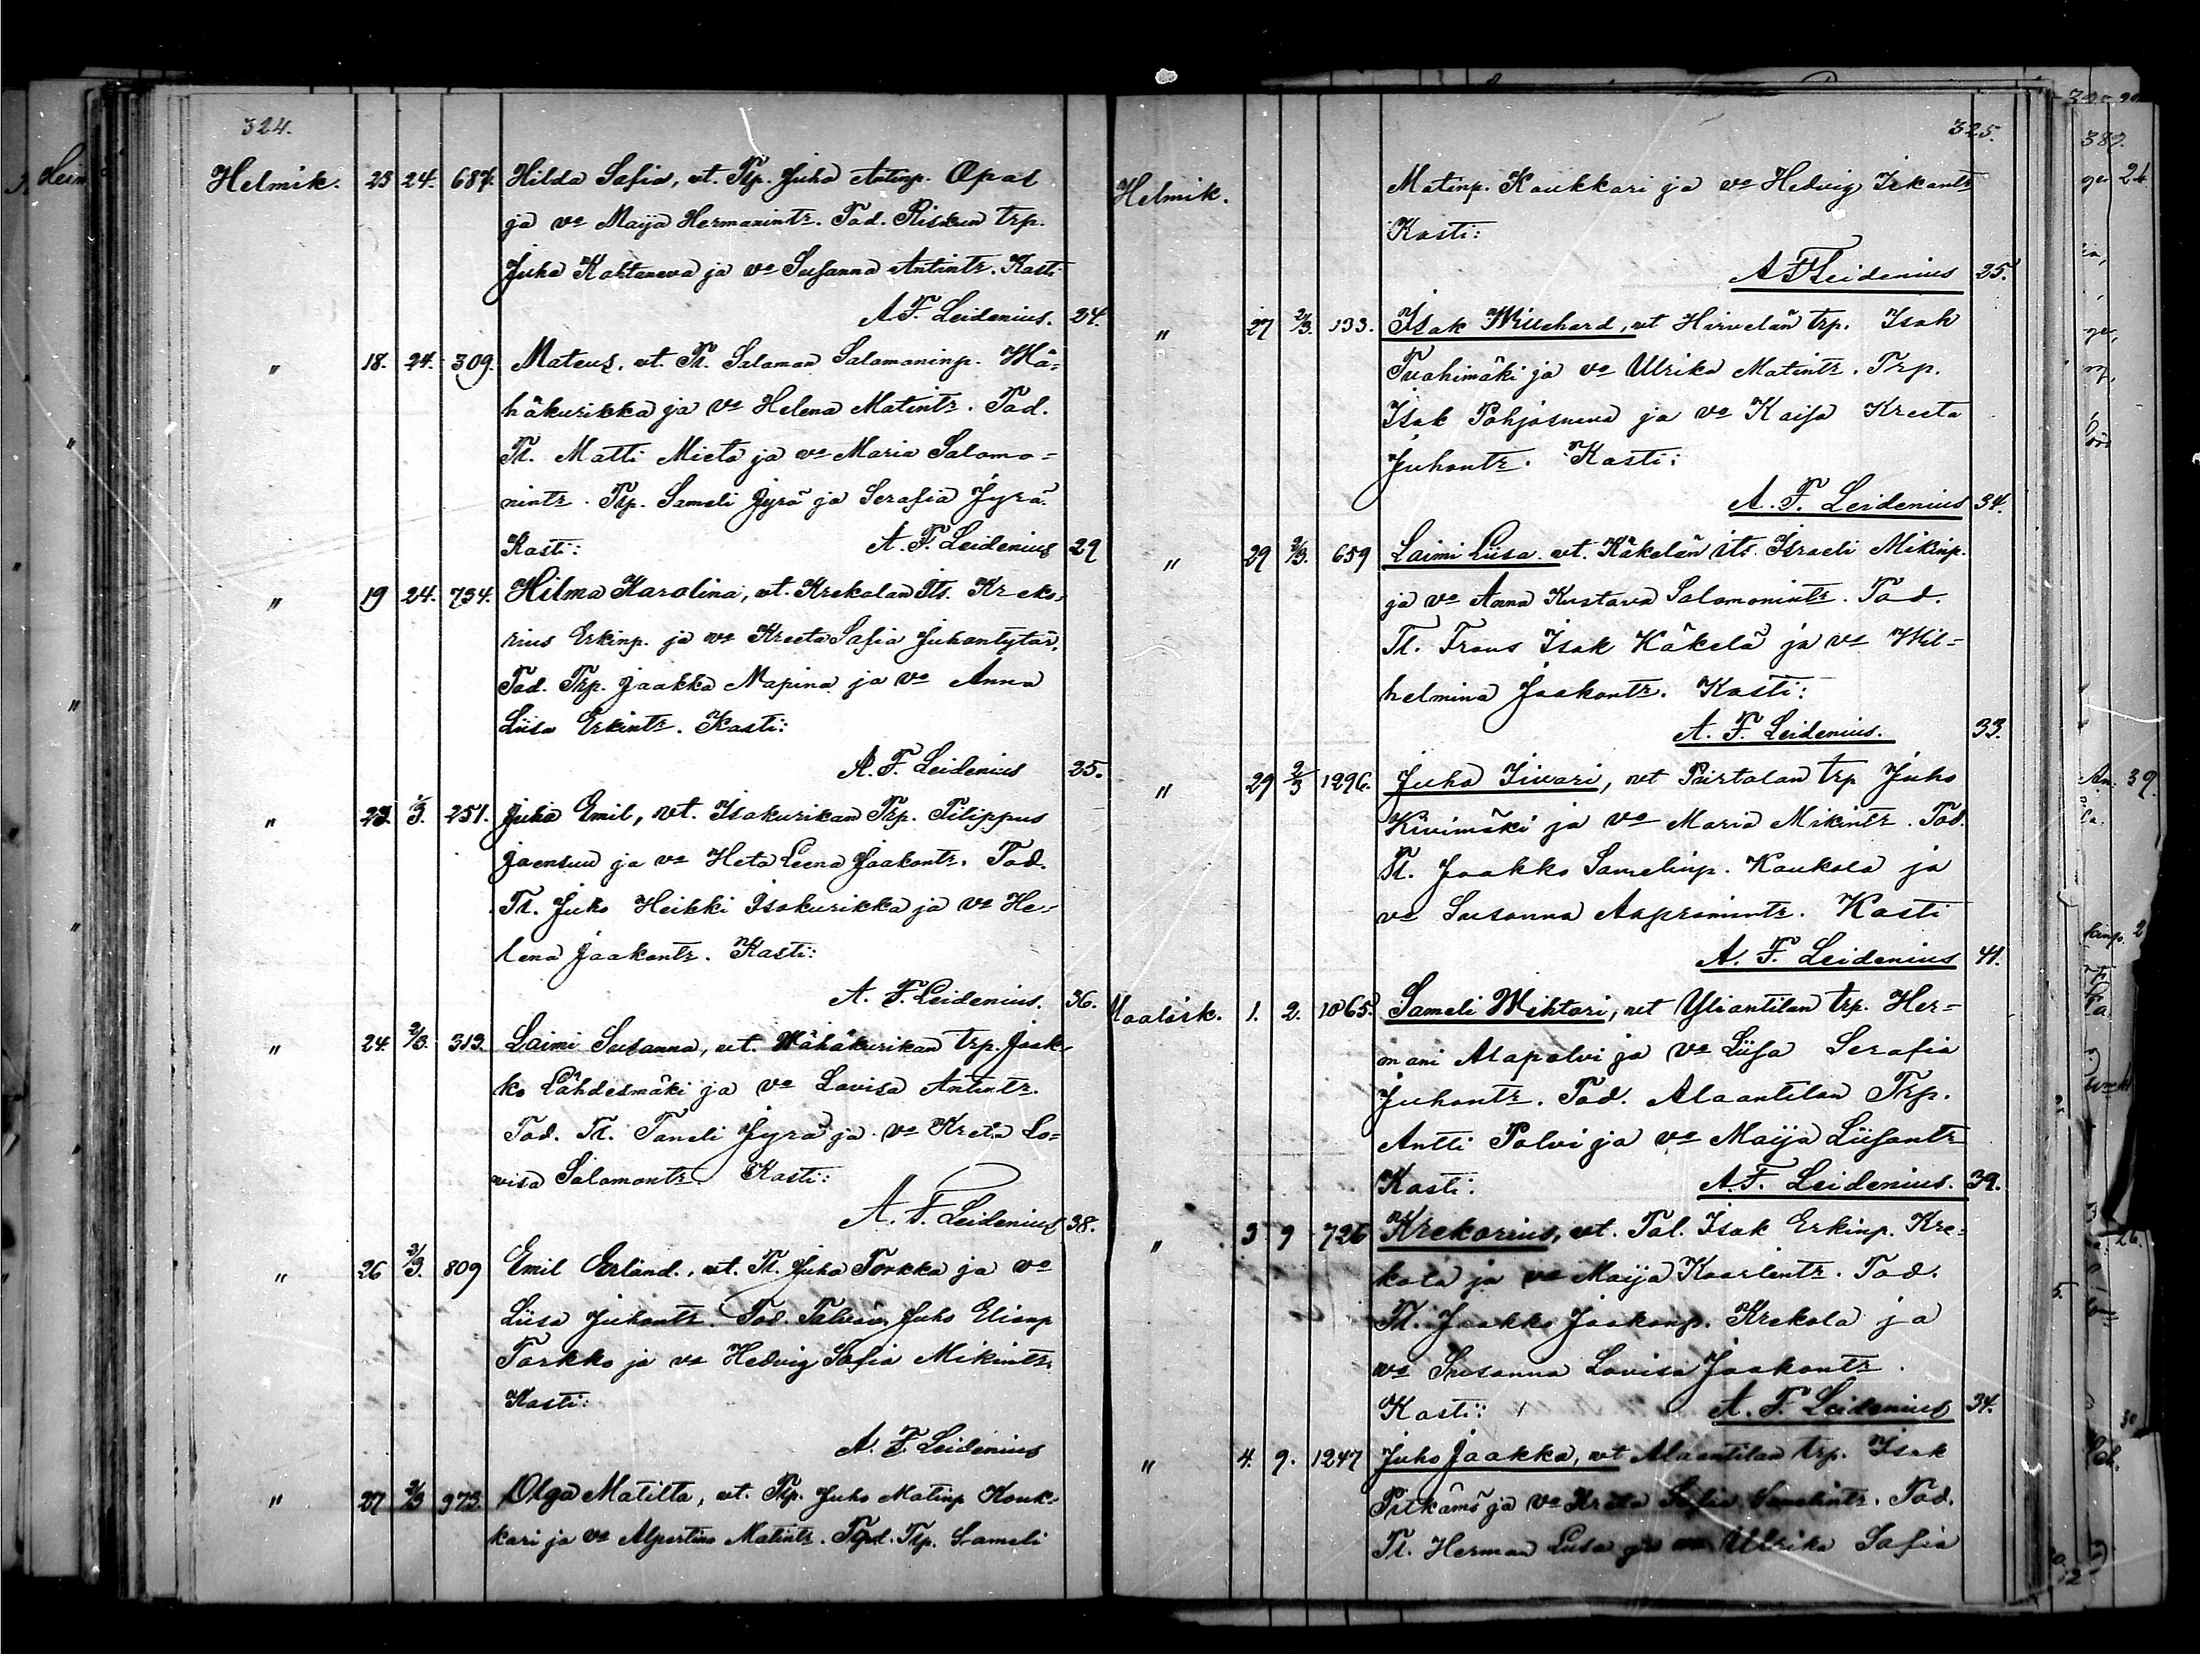 324.
Helmik. 23 24. 687. Hilda Sofia, vt. Trp. Juho Antinp. Opas
ja vo Maija Hermanintr. Tod. Riskun trp.
Juho Kahtaneva ja vo Susanna Antintr. Kasti
A. F. Leidenius. 24.
" 18. 24. 309. Mateus, vt. Tl. Salomon Salomoninp. Wä-
häkurikka ja vo Helena Matintr. Tod.
Tl. Matti Mieto ja vo Maria Salomo-
nintr. Trp. Sameli Jyrä ja Serafia Jyrä.
Kasti: A. F. Leidenius 29
" 19 24. 734. Hilma Karolina, vt. Krekolan Its. Kreko-
rius Erkinp. ja vo Kreeta Sofia Juhontytär,
Tod. Trp. Jaakko Napina ja vo Anna
Liisa Erkintr. Kasti:
A. F. Leidenius 25.
" 23. 1/3. 251. Juho Emil, vt. Isokurikan Trp. Pilippus
Joensuu ja vo Heta Leena Jaakontr. Tod.
Tl. Juho Heikki Isokurikka ja vo He-
lena Jaakontr. Kasti:
A. F. Leidenius. 36.
" 24. 2/3. 313. Laimi Susanna, vt. Wähäkurikan trp. Jaak-
ko Lähdesmäki ja vo Lovisa Antintr.
Tod. Tl. Taneli Jyrä ja vo Kreta Lo-
visa Salomontr. Kasti:
A. F. Leidenius 38.
" 26 2/3. 809 Emil Erland., vt. Tl. Juho Torkko ja vo
Liisa Juhontr. Tod. Juho Elianp
Torkko ja vo Hedvig Sofia Mikintr.
Kasti:
A. F. Leidenius
" 27 2/3 973. Olga Matilta, vt. Trp. Juho Matinp Kouk-
kari ja vo Alpertina Matintr. Tod. Trp. Sameli
325.
Helmik. Matinp. Koukkari ja vo Hedvig Iskantr
Kasti:
A F Leidenius 25.
" 27 2/3. 133. Isak Willehard, vt Hirvelän trp. Isak
Tuohimäki ja vo Ulrika Matintr. Trp.
Isak Pohjosneva ja vo Kaisa Kreeta
Juhontr. Kasti:
A. F. Leidenius 34.
" 29 2/3. 659 Laimi Liisa vt. Käkelän its. Israeli Mikinp.
ja vo Anna Kustava Salomonintr. Tod.
Tl. Frans Isak Käkelä ja vo Wil-
helmina Jaakontr. Kasti:
A. F. Leidenius. 33.
" 29 2/3 1296. Juho Iivari, vt Pirtolan trp Juho
Kivimäki ja vo Maria Mikintr. Tod.
Tl. Jaakko Samelinp. Koukola ja
vo Susanna Aapramintr. Kasti
A. F. Leidenius 41.
Maalisk. 1. 2. 1065. Sameli Wihtori, vt Yliantilan trp. Her-
mani Alapolvi ja vo Liisa Serafia
Juhontr. Tod. Alaantilan Trp.
Antti Polvi ja vo Maija Liisantr
Kasti: A. F. Leidenius. 39.
" 3 9 726 Krekorius, vt. Tal. Isak Erkinp. Kre-
kola ja vo Maija Kaarlentr. Tod.
Tl. Jaakko Jaakonp. Krekola ja
vo Susanna Lovisa Jaakontr.
Kasti: A. F. Leidenius 34.
" 4. 9. 1247 Juho Jaakko, vt Alaantilan trp. Isak
Pitkämö ja vo Kreta Sofia Samelintr. Tod.
Tl. Herman Luoa ja vo Ulrika Sofia